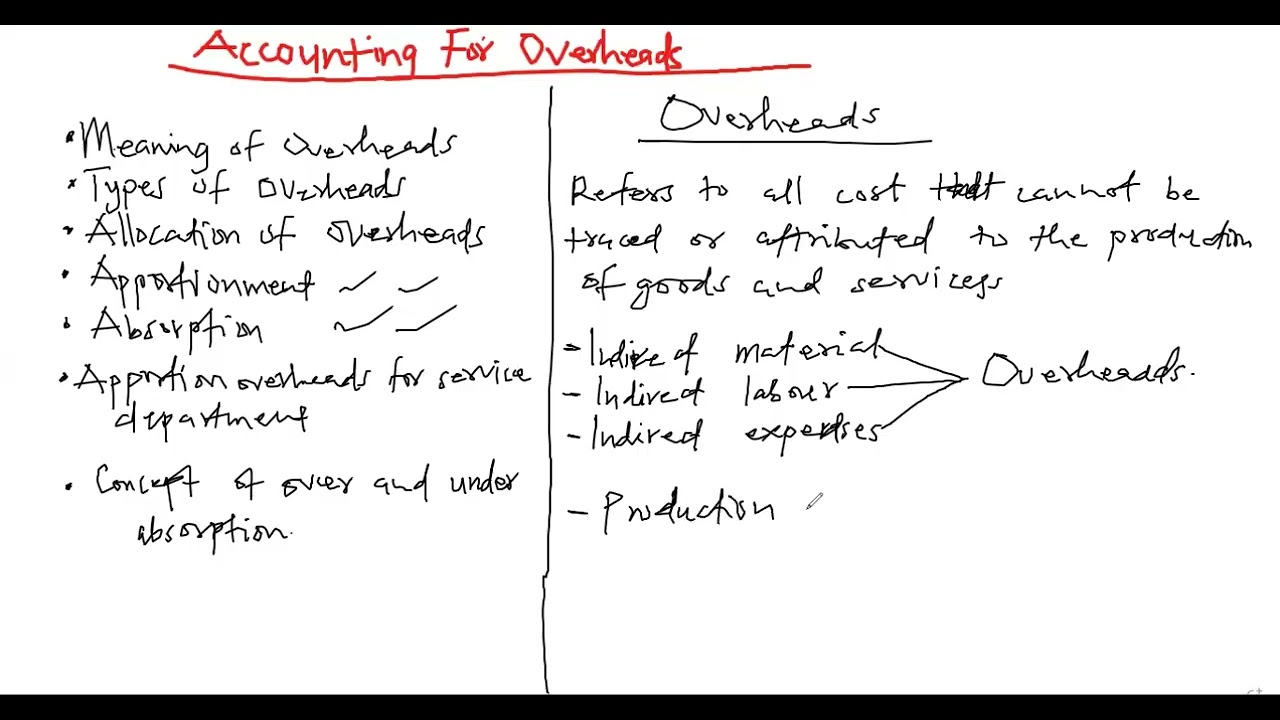 Accounting For Overheads
• Meaning of overheads
• Types of overheads
• Allocation of overheads
• Apportionment
• Absorption
• Apportion overheads for service
department
• Concept of over and under
absorption.
Overheads
Refers to all cost that cannot be
traced or attributed to the production
of goods and services
- Indirect material
- Indirect labour
- Indirect expenses
Overheads.
- Production